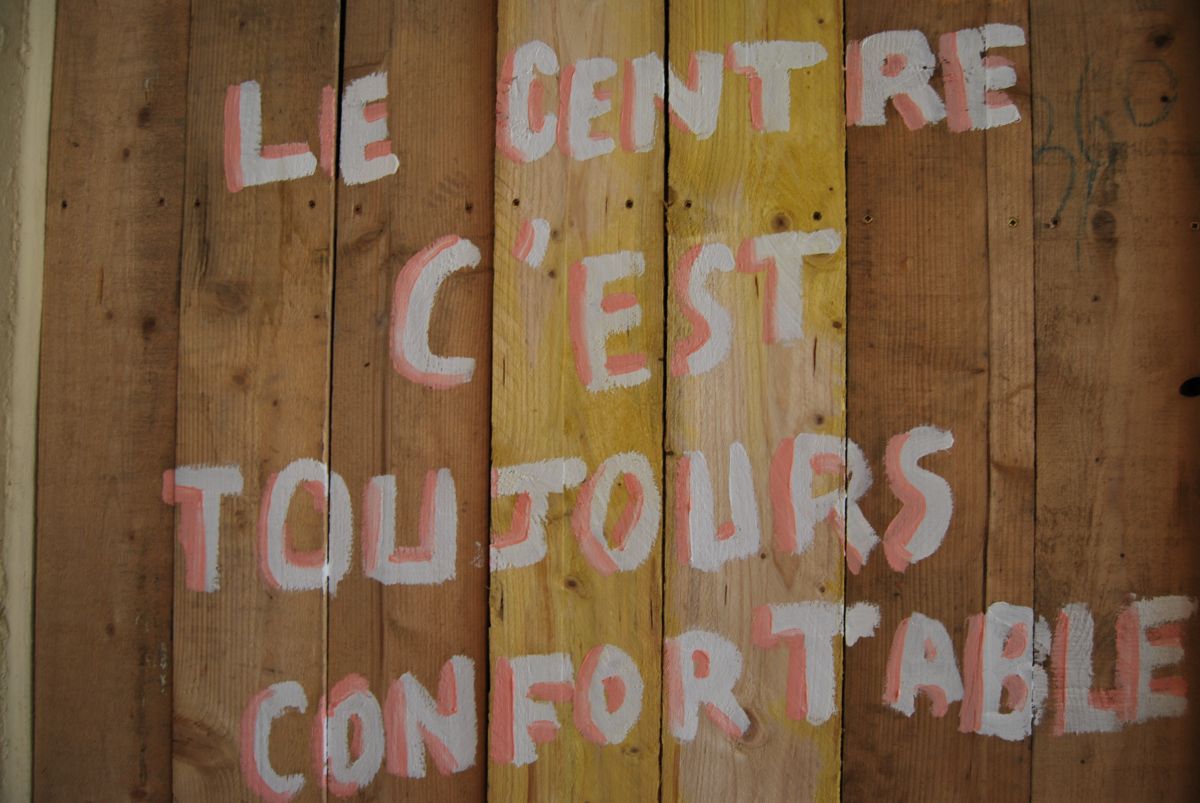 LE CENTRE
C'EST
TOUJOURS
CONFORTABLE